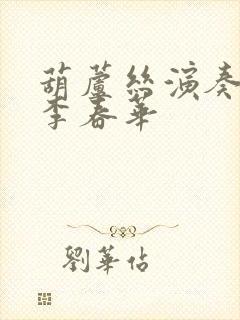 葫蘆絲演奏
李春華
劉華佔